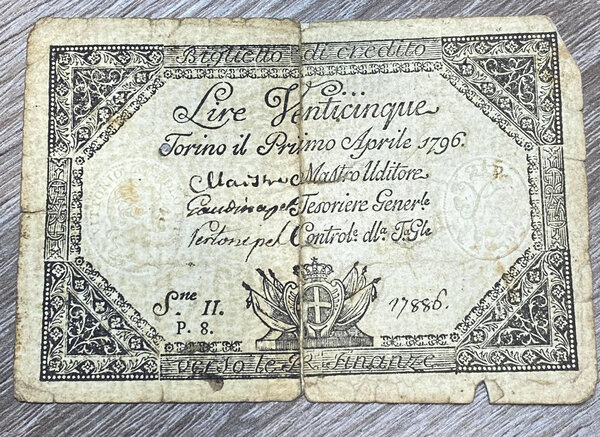 Biglietto di credito
Lire Venticinque
Torino il Primo Aprile 1796.
Mastro Uditore
P.
Gaudina pel Tesoriere Gener.le
Pertone pel Control.e dl.a T.a G.le
S.ne II.
17886.
P. 8.
verso le R. Finanze